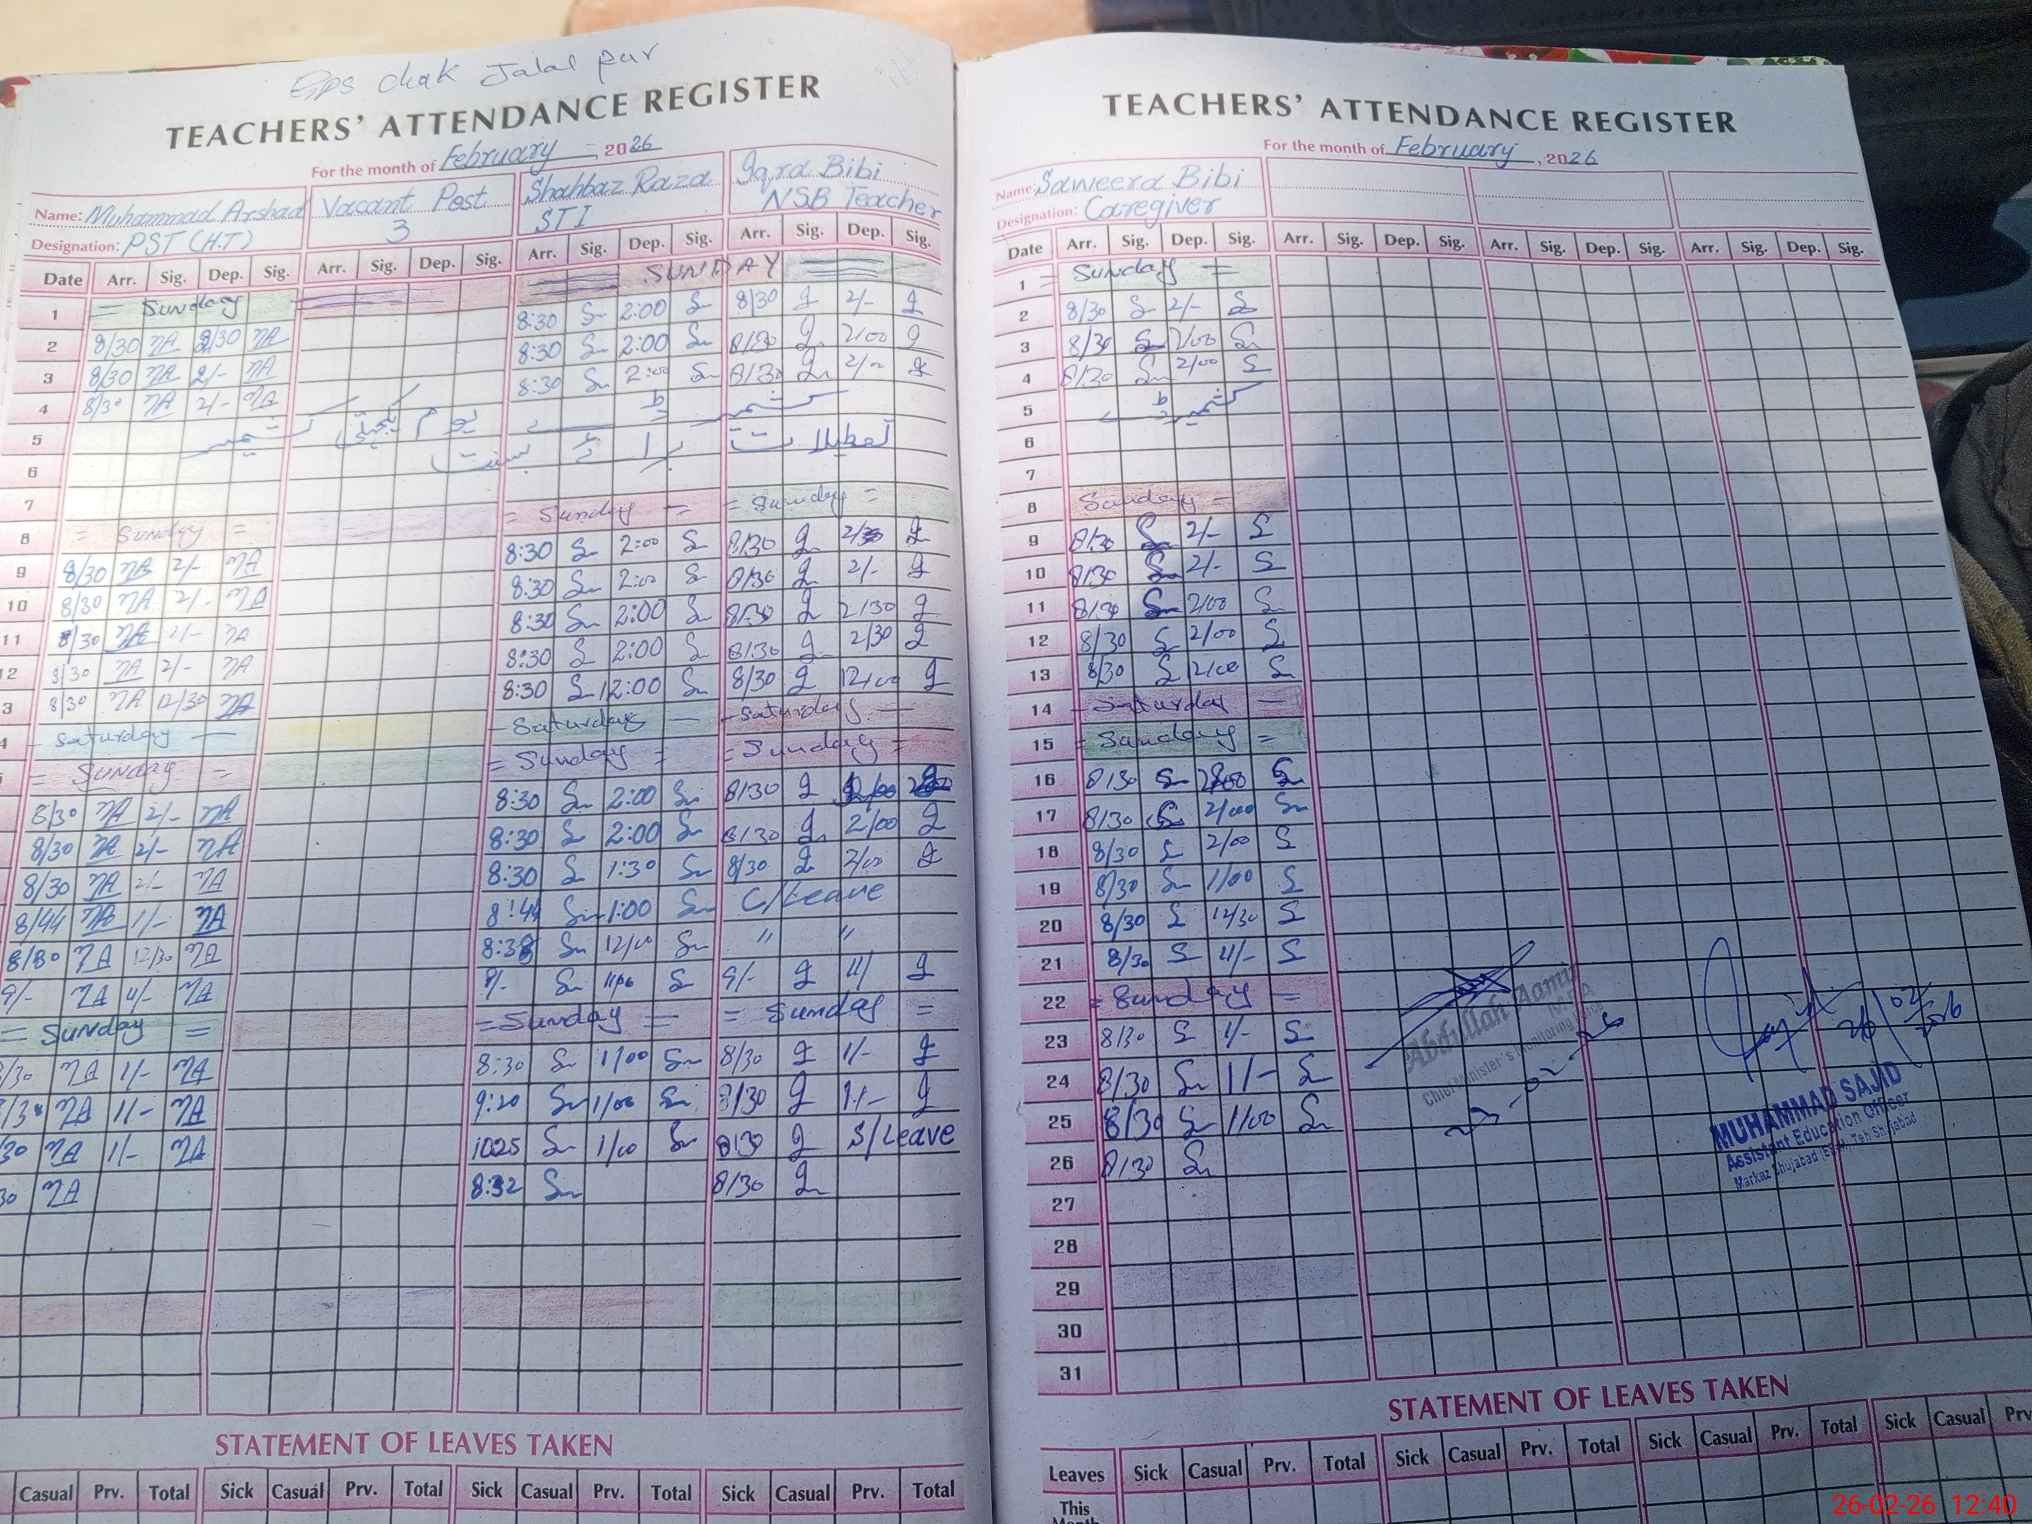 Gps chak Jalal pur
TEACHERS' ATTENDANCE REGISTER
For the month of February, 2026
Name: Muhammad Arshad | Vacant Post | Shahbaz Raza | Iqra Bibi
Designation: PST (H.T) | 3 | STI | NSB Teacher
Date Arr. Sig. Dep. Sig. Arr. Sig. Dep. Sig. Arr. Sig. Dep. Sig. Arr. Sig. Dep. Sig.
1 = Sunday SUNDAY
2 8/30 NA 2/30 NA 8:30 S 2:00 S 8/30 2/-
3 8/30 NA 2/- NA 8:30 S 2:00 S 8/30 2/00
4 8/30 NA 2/- NA 8:30 S 2:00 S 8/30
5 یوم یکجہتی کشمیر
6 تعطیلات برائے بسنت
7
8 = Sunday = = Sunday = = Sunday =
9 8/30 NA 2/- NA 8:30 S 2:00 S 8/30
10 8/30 NA 2/- NA 8:30 S 2:00 S 8/30 2/-
11 8/30 NA 2/- NA 8:30 S 2:00 S 8/30 2/30
12 8/30 NA 2/- NA 8:30 S 2:00 S 8/30 2/30
3 8/30 NA 12/30 NA 8:30 S 12:00 S 8/30 12/00
4 - Saturday - - Saturday - - Saturday -
= Sunday = = Sunday = = Sunday =
8/30 NA 2/- NA 8:30 S 2:00 S 8/30
8/30 NA 2/- NA 8:30 S 2:00 S 8/30 2/00
8/30 NA 2/- NA 8:30 S 1:30 S 8/30 2/00
8/44 NA 1/- NA 8:44 S 1:00 S C/Leave
8/30 NA 12/30 NA 8:38 S 12/00 S " "
9/- NA 11/- NA 9/- S 11/00 S 9/- 11/
= Sunday = = Sunday = = Sunday =
/30 NA 1/- NA 8:30 S 1/00 S 8/30 1/-
/30 NA 1/- NA 9:20 S 1/00 S 8/30 1/-
30 NA 1/- NA 1025 S 1/00 S 8/30 S/Leave
30 NA 8:32 S 8/30
STATEMENT OF LEAVES TAKEN
Casual Prv. Total Sick Casual Prv. Total Sick Casual Prv. Total Sick Casual Prv. Total
TEACHERS' ATTENDANCE REGISTER
For the month of February, 2026
Name: Saweera Bibi
Designation: Caregiver
Date Arr. Sig. Dep. Sig. Arr. Sig. Dep. Sig. Arr. Sig. Dep. Sig. Arr. Sig. Dep. Sig.
1 = Sunday =
2 8/30 S 2/- S
3 8/30 S 2/00 S
4 8/30 S 2/00 S
5 کشمیر ڈے
6
7
8 Sunday -
9 8/30 S 2/- S
10 8/30 S 2/- S
11 8/30 S 2/00 S
12 8/30 S 2/00 S
13 8/30 S 12/00 S
14 - Saturday -
15 = Sunday =
16 8/30 S S
17 8/30 S 2/00 S
18 8/30 S 2/00 S
19 8/30 S 1/00 S
20 8/30 S 12/30 S
21 8/30 S 11/- S
22 = Sunday =
23 8/30 S 1/- S
24 8/30 S 1/- S
25 8/30 S 1/00 S
26 8/30 S
27
28
29
30
31
Abdullah Aamir
Chief Minister's Monitoring
26/02/2026
MUHAMMAD SAJID
Assistant Education Officer
Markaz Shujabad Teh Shujabad
STATEMENT OF LEAVES TAKEN
Leaves Sick Casual Prv. Total Sick Casual Prv. Total Sick Casual Prv. Total Sick Casual Prv.
This
Month
26-02-26 12:40